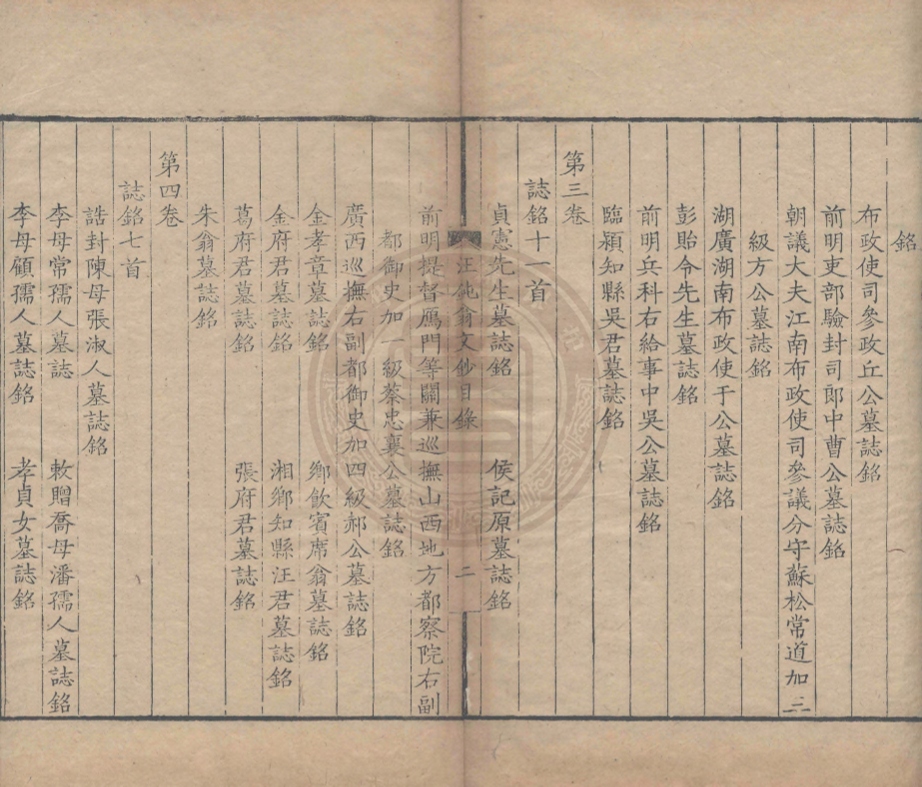 銘
布政使司參政丘公墓誌銘
前明吏部驗封司郎中曹公墓誌銘
朝議大夫江南布政使司參議分守蘇松常道加二
級方公墓誌銘
湖廣湖南布政使于公墓誌銘
彭貽令先生墓誌銘
前明兵科右給事中吳公墓誌銘
臨潁知縣吳君墓誌銘
第三卷
誌銘十一首
貞憲先生墓誌銘 侯記原墓誌銘
汪鈍翁文鈔目錄 二
前明提督鴈門等關兼巡撫山西地方都察院右副
都御史加一級蔡忠襄公墓誌銘
廣西巡撫右副都御史加四級郝公墓誌銘
金孝章墓誌銘 鄉飲賓席翁墓誌銘
金府君墓誌銘 湘鄉知縣汪君墓誌銘
葛府君墓誌銘 張府君墓誌銘
朱翁墓誌銘
第四卷
誌銘七首
誥封陳母張淑人墓誌銘
李母常孺人墓誌 敕贈喬母潘孺人墓誌銘
李母顧孺人墓誌銘 孝貞女墓誌銘